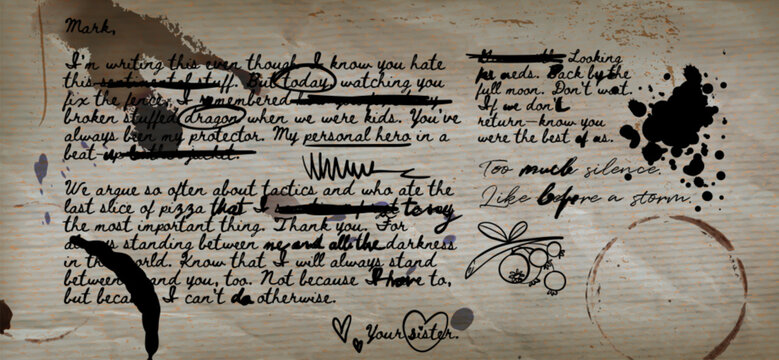 Mark,
I'm writing this even though I know you hate
this stuff. But today, watching you
fix the fence, I remembered
broken stuffed dragon when we were kids. You've
always been my protector. My personal hero in a
beat-
We argue so often about tactics and who ate the
last slice of pizza that I to say
the most important thing. Thank you. For
standing between me and all the darkness
in the world. Know that I will always stand
between and you, too. Not because I have to,
but because I can't do otherwise.
Your sister.
Looking
for meds. Back by the
full moon. Don't wait.
If we don't
return—know you
were the best of us.
Too much silence.
Like before a storm.